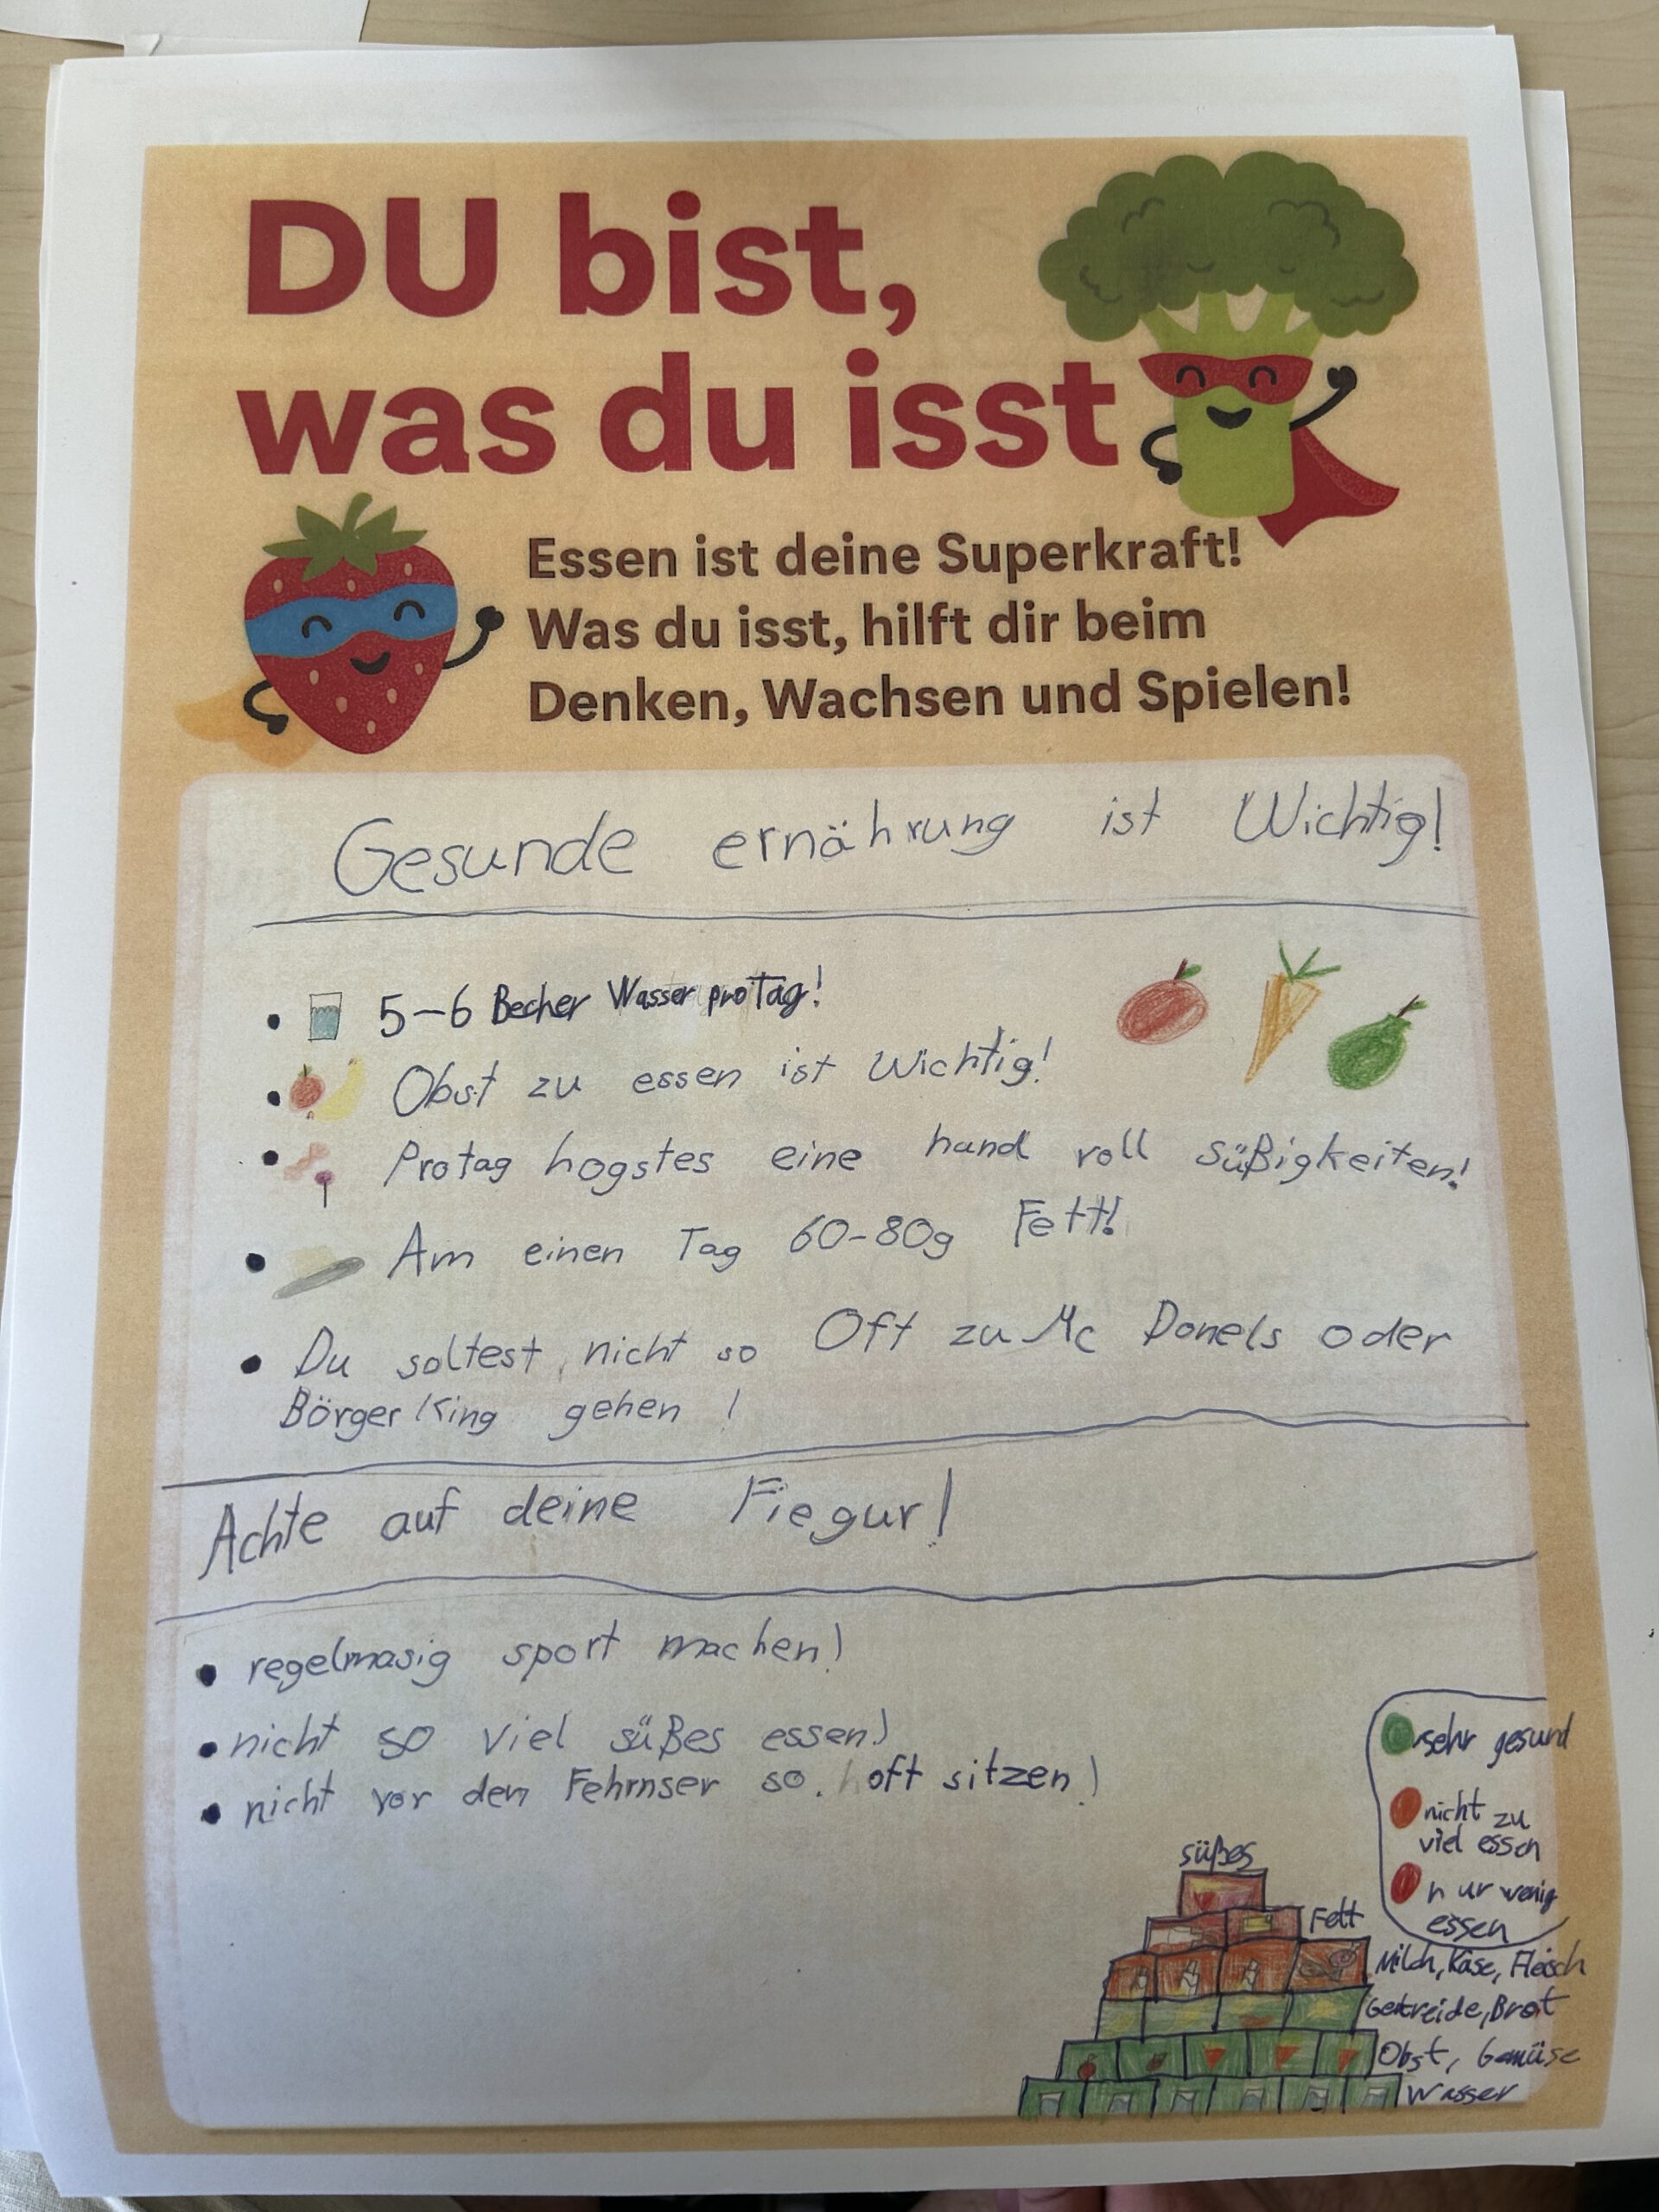 DU bist,
was du isst
Essen ist deine Superkraft!
Was du isst, hilft dir beim
Denken, Wachsen und Spielen!
Gesunde ernährung ist Wichtig!
• 5-6 Becher Wasser pro Tag!
• Obst zu essen ist Wichtig!
• Protag hogstes eine hand voll süßigkeiten!
• Am einen Tag 60-80g Fett!
• Du soltest, nicht so Oft zu Mc Donels oder
Börger King gehen!
Achte auf deine Fiegur!
• regelmasig sport machen!
• nicht so viel süßes essen!
• nicht vor den Fehrnser so. oft sitzen!
sehr gesund
nicht zu
viel essen
nur wenig
essen
süßes
Fett
Milch, Käse, Fleisch
Getreide, Brot
Obst, Gemüse
Wasser